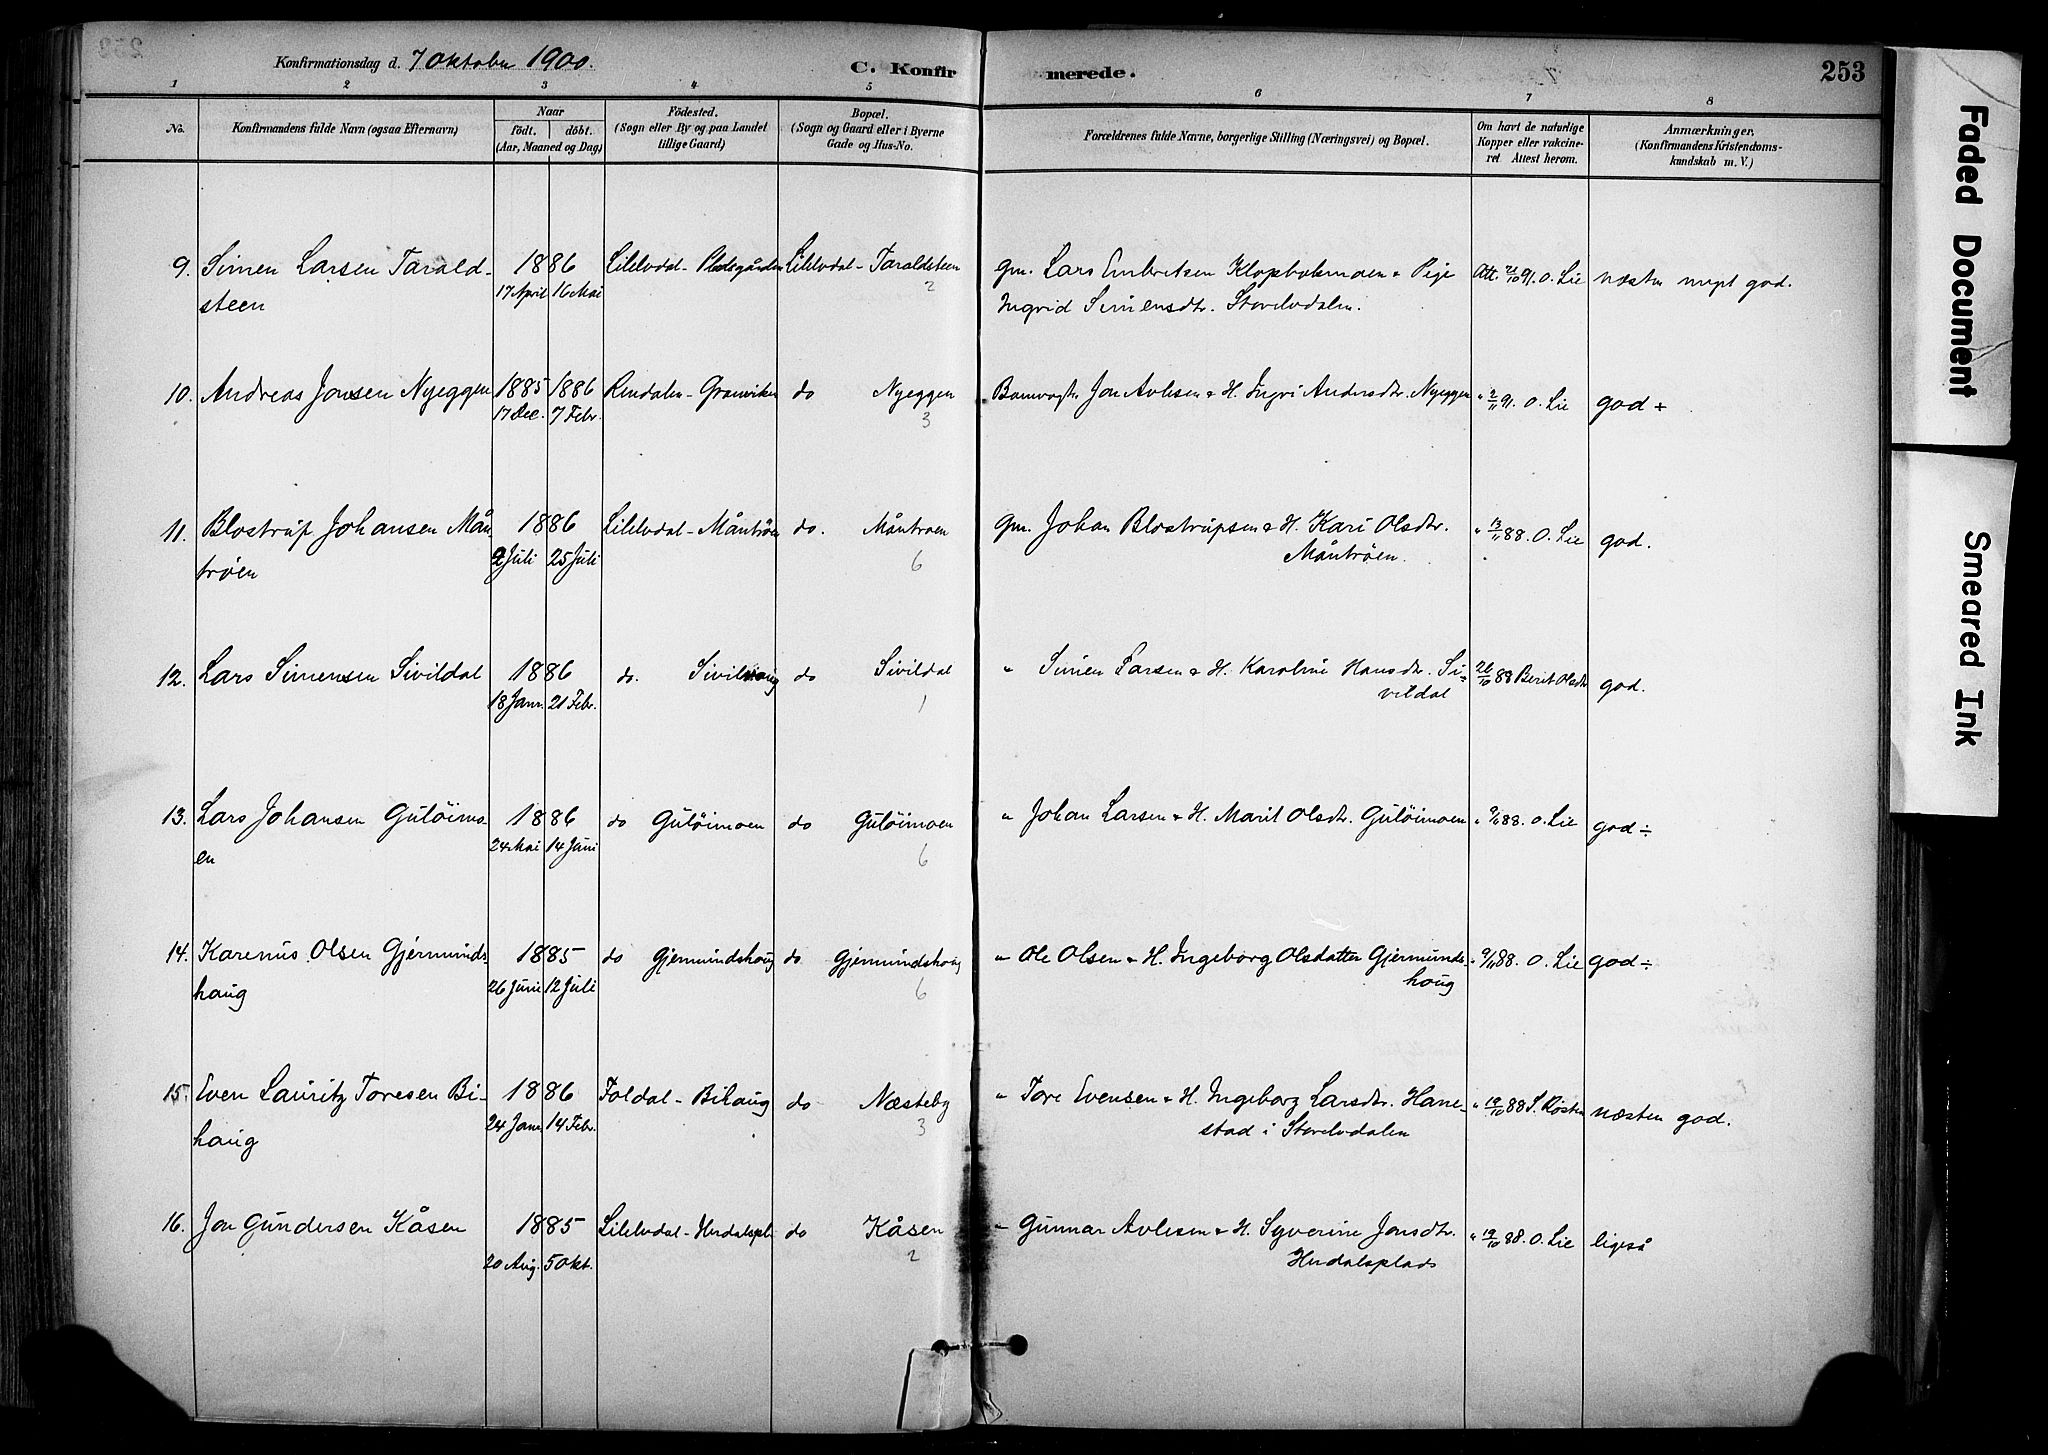 Konfirmationsdag d. 7 Oktober 1900.
C. Konfir merede.
253
1 2 3 4 5 6 7 8
No.
Konfirmandens fulde Navn (ogsaa Efternavn)
Naar
födt. döbt.
(Aar, Maaned og Dag)
Födested.
(Sogn eller By og paa Landet
tillige Gaard)
Bopæl.
(Sogn og Gaard eller i Byerne
Gade og Hus-No.
Forældrenes fulde Navne, borgerlige Stilling (Næringsvei) og Bopæl.
Om havt de naturlige
Kopper eller vakcine-
ret Attest herom.
Anmærkninger.
(Konfirmandens Kristendoms-
kundskab m. V.)
9. Simen Larsen Tarald- 1886 Lilelvdal - Lilelvdal - Taraldsteen gm. Lars Embretsen & Pige Att. 21/10 91. O. Lie næsten meget god.
steen 17 April 16 Mai 2 Ingrid Simensdtr. Storelvdalen.
10. Andreas Jonsen Nyeggen 1885 1886 Rendalen - Granviken do Nyeggen Jon Avlesen & H. Ingri Andersdtr. Nyeggen " 2/11 91. O. Lie god +
17 Dec. 7 Febr. 3
11. Blostrup Johansen Mån- 1886 Lilelvdal - Måntröen do. Måntroen gm. Johan Blostrupsen & H. Kari Olsdtr. " 13/11 88. O. Lie god.
tröen 2 Juli 25 Juli 6 Måntröen.
12. Lars Simensen Sivildal 1886 do. do Sivildal " Simen Larsen & H. Karoline Hansdtr. Si- 26/10 88 Berit Olsdtr god.
18 Janr. 21 Febr. 1 vildal
13. Lars Johansen Gulöimo- 1886 do Gulöimoen do Gulöimoen " Johan Larsen & H. Marit Olsdtr. Gulöimoen " 9/11 88. O. Lie god ÷
en 24 Mai 14 Juni 6
14. Karenus Olsen Gjermunds- 1885 do Gjermundshoug do Gjermundshoug " Ole Olsen & H. Ingeborg Olsdatter Gjermunds- " 9/11 88. O. Lie god ÷
haug 26 Juni 12 Juli 6 houg
15. Even Lauritz Toresen Bi- 1886 Foldal - Bihaug do Næsteby " Tore Evensen & H. Ingeborg Larsdtr. Hane- " 19/10 88 næsten god.
haug 24 Janr. 14 Febr. 3 stad i Storelvdalen
16. Jon Gundersen Kåsen 1885 Lilelvdal - do Kåsen " Gunnar Avlesen & H. Syverine Jonsdtr. " 19/10 88. O. Lie ligeså
20 Aug. 5 Okt. 2
Faded Document
Smeared Ink